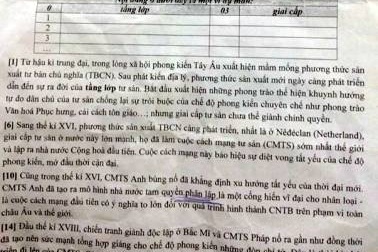 0 tầng lớp 03 giai cấp
1
2
3
...
[1] Từ hậu kì trung đại, trong lòng xã hội phong kiến Tây Âu xuất hiện mầm mống phương thức sản
xuất tư bản chủ nghĩa (TBCN). Sau phát kiến địa lý, phương thức sản xuất mới ngày càng phát triển
dẫn đến sự ra đời của tầng lớp tư sản. Bắt đầu xuất hiện những phong trào thể hiện khuynh hướng
tự do dân chủ của tư sản chống lại sự trói buộc của chế độ phong kiến chuyên chế như phong trào
Văn hoá Phục hưng, cải cách tôn giáo...; nhưng giai cấp tư sản chưa thể giành chính quyền.
[6] Sang thế kỉ XVI, phương thức sản xuất TBCN càng phát triển, nhất là ở Nêđéclan (Netherland),
giai cấp tư sản ở nước này lớn mạnh, họ đã làm cuộc cách mạng tư sản (CMTS) sớm nhất thế giới
và lập ra nhà nước Cộng hoà đầu tiên. Cuộc cách mạng này báo hiệu sự diệt vong tất yếu của chế độ
phong kiến, mở đầu thời cận đại.
[10] Cũng trong thế kỉ XVI, CMTS Anh bùng nổ đã khẳng định xu hướng tất yếu của thời đại mới.
CMTS Anh đã tạo ra mô hình nhà nước tam quyền phân lập là một cống hiến vĩ đại cho nhân loại -
là cuộc cách mạng đầu tiên có ý nghĩa to lớn đối với quá trình hình thành CNTB trên phạm vi toàn
châu Âu và thế giới.
[14] Đầu thế kỉ XVIII, chiến tranh giành độc lập ở Bắc Mĩ và CMTS Pháp nổ ra gần như đồng thời
đã tạo nên sức mạnh tổng hợp giáng cho chế độ phong kiến những đòn